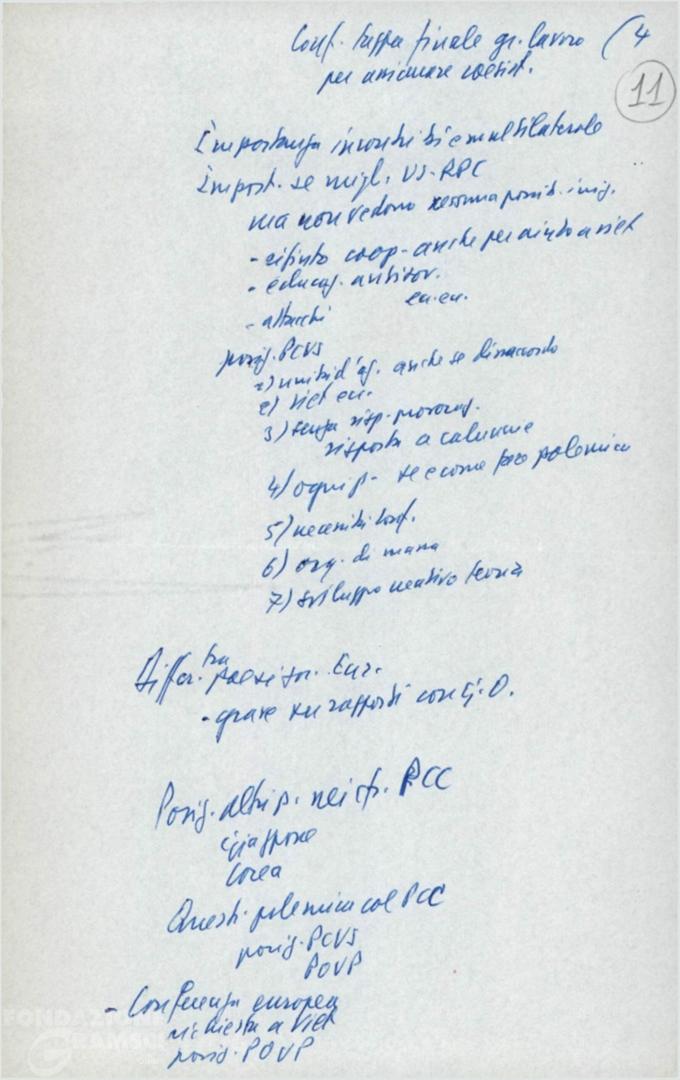 Conf. tappa finale gr. lavoro (4
per assicurare coesist.
11
Importanza incontri bi e multilaterale
Import. se migl. US-RPC
ma non vedono nessuna possib. imm.
- rifiuto coop. anche per aiuto a Viet
- educaz. antisov.
- attacchi
posiz. PCUS
1) unità d'az. anche se disaccordo
2) Viet
3) senza risp. provocaz.
risposta a calunnie
4) ogni p. se e come fare polemica
5) necessità conf.
6) org. di massa
7) sviluppo creativo teoria
Differ. tra paesi soc. Eur.
- grave su rapporti con G.O.
Posiz. altri p. nei cfr. PCC
Giappone
Corea
Quest. polemica col PCC
posiz. PCUS
POUP
- Conferenza europea
richiesta a Viet
posiz. POUP
FONDAZIONE
GRAMSCI